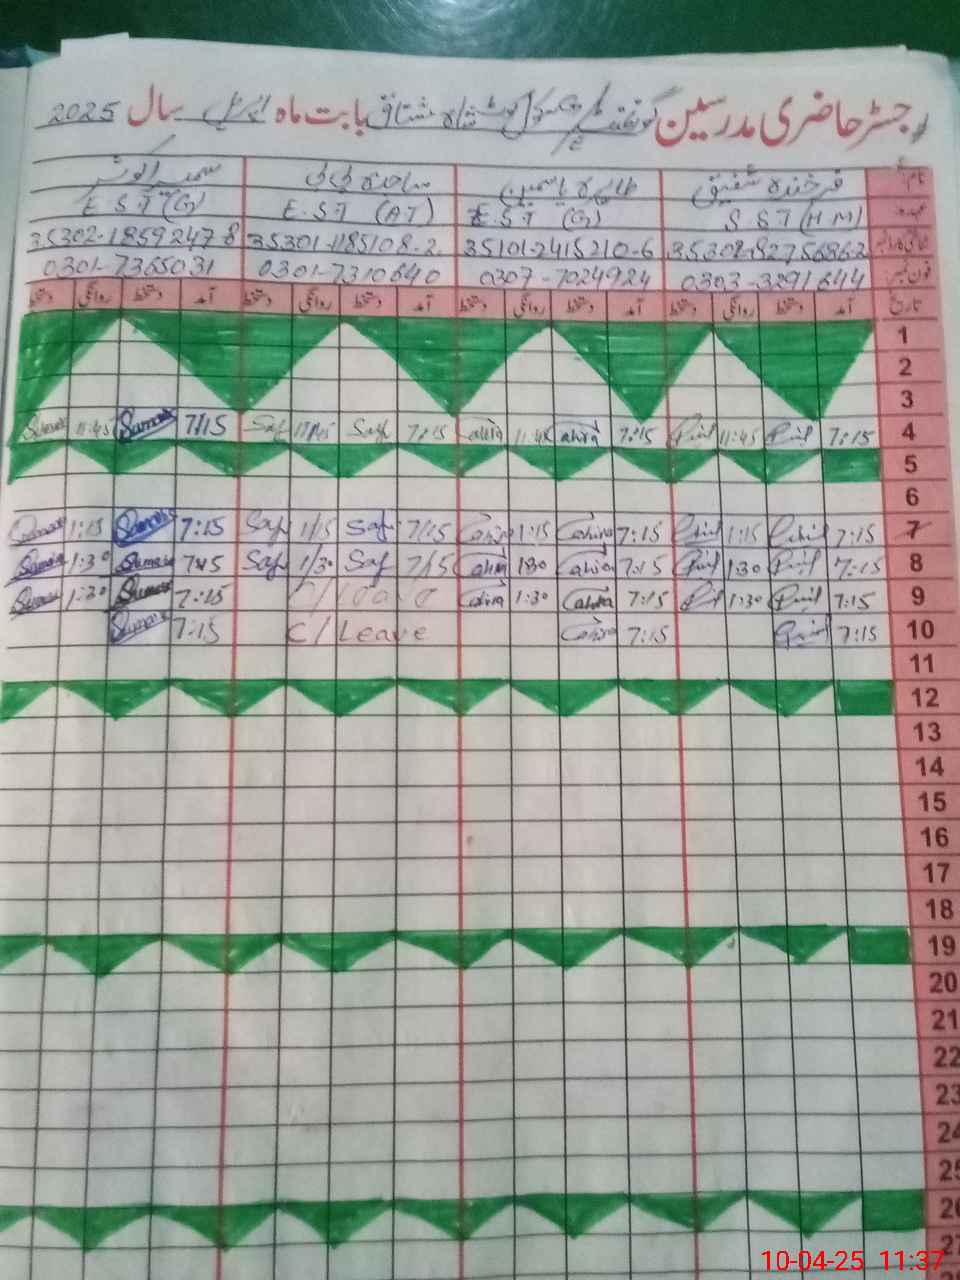 رجسٹر حاضری مدرسین گورنمنٹ بابت ماہ اپریل سال 2025
نام فرخندہ شفیق طاہرہ یاسمین ساجدہ بی بی سمیہ کوثر
عہدہ SST (HM) EST (G) E.S.T (AT) E.S.T (G)
35302-8275686-2 35101-2415210-6 35301-1185108-2 35302-1859247-8
فون نمبر 0303-3291644 0307-7024924 0301-7310640 0301-7365031
تاریخ آمد دستخط روانگی دستخط آمد دستخط روانگی دستخط آمد دستخط روانگی دستخط آمد دستخط روانگی دستخط
1
2
3
4 7:15 11:45 7:15 Tahira 11:45 Tahira 7:15 Saf 11:45 Saf 7:15 Sumaia 11:45 Sumaia
5
6
7 7:15 1:15 7:15 Tahira 1:15 Tahira 7:15 Saf 1:15 Saf 7:15 Sumaia 1:15 Sumaia
8 7:15 1:30 7:15 Tahira 1:30 Tahira 7:15 Saf 1:30 Saf 7:15 Sumaia 1:30 Sumaia
9 7:15 1:30 7:15 Tahira 1:30 Tahira C/Leave 7:15 Sumaia 1:30 Sumaia
10 7:15 7:15 Tahira C/Leave 7:15 Sumaia
11
12
13
14
15
16
17
18
19
20
21
22
23
24
25
26
27
10-04-25 11:37